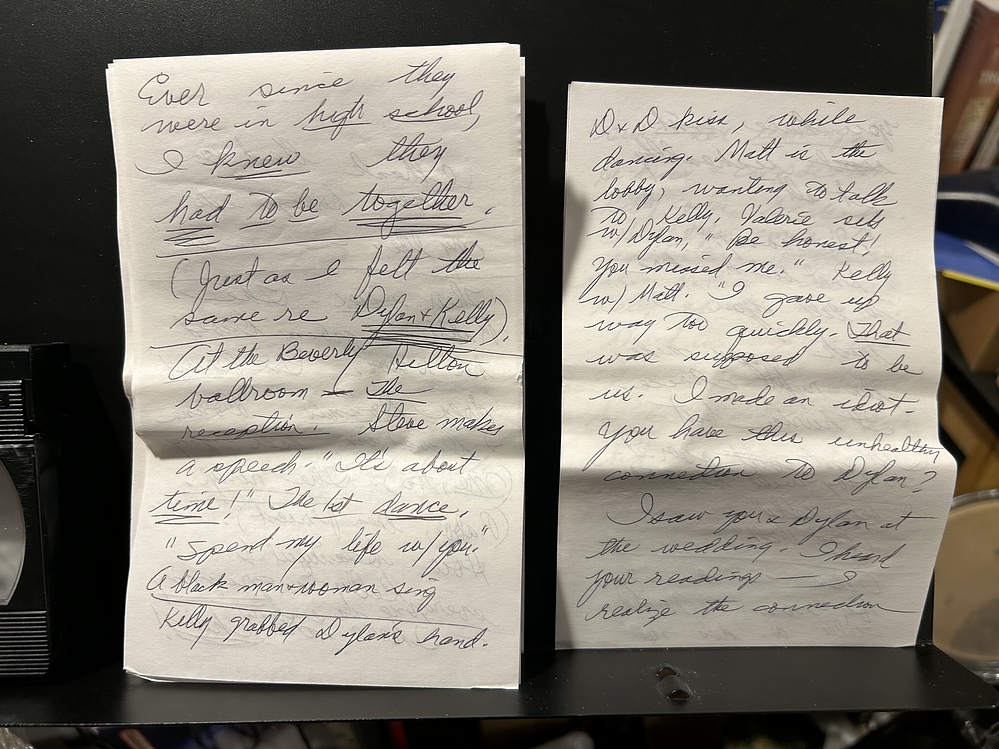 Ever since they
were in high school,
I knew they
had to be together.
(Just as I felt the
same re Dylan & Kelly).
At the Beverly Hilton
ballroom — The
reception. Steve makes
a speech. "It's about
time!" The 1st dance.
"Spend my life w/ you."
A black man & woman sing
Kelly grabbed Dylan's hand.
D & D kiss, while
dancing. Matt is the
lobby, wanting to talk
to Kelly, Valerie sits
w/ Dylan, "Be honest!
You missed me." Kelly
w/ Matt. "I gave up
way too quickly. That
was supposed to be
us. I made an idiot-
You have this unhealthy
connection to Dylan?
I saw you & Dylan at
the wedding. I heard
your readings — I
realize the connection